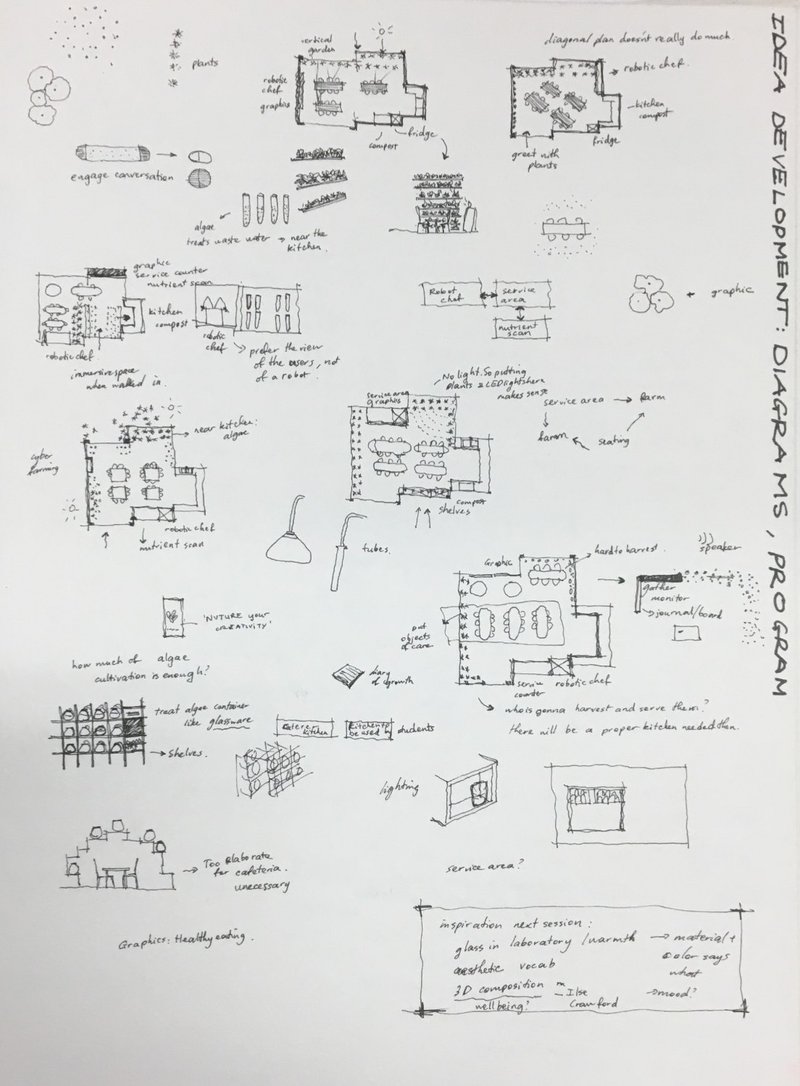 IDEA DEVELOPMENT: DIAGRAMS, PROGRAM
plants
vertical
garden
robotic
chef
graphics
compost
fridge
diagonal plan doesn't really do much
robotic chef.
kitchen
compost
fridge
greet with
plants
engage conversation
algae
treats waste water → near the
kitchen.
graphic
service counter
nutrient scan
kitchen
compost
robotic chef
immersive space
when walked in.
robotic
chef
prefer the view
of the users, not
of a robot.
Robot
chef
service
area
nutrient
scan
+ graphic
No light. So putting
plants & LED lights here
makes sense
service area
graphics
compost
shelves
service area → farm
farm
seating
near kitchen:
algae
cyber
farming
robotic chef
nutrient scan
tubes.
Graphic
hard to harvest.
speaker
gather
monitor
→ journal/board
put
objects
of care
service
counter
robotic chef
who is gonna harvest and serve them?
there will be a proper kitchen needed then.
'NUTURE your
CREATIVITY'
how much of algae
cultivation is enough?
diary
of growth
treat algae container
like glassware
→ Shelves.
kitchen
Kitchen to
be used by students
lighting
service area?
→ Too elaborate
for cafeteria.
unnecessary
Graphics: Healthy eating.
inspiration next session:
glass in laboratory / warmth → material +
color says
what
aesthetic vocab
3D composition
Ilse
Crawford
→ mood?
wellbeing?